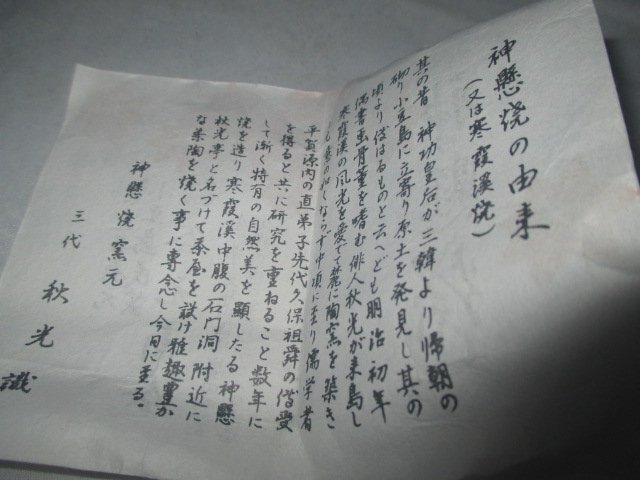 神懸焼の由来
（又は寒霞溪焼）
其の昔 神功皇后が三韓より帰朝の
砌り小豆島に立寄り原土を発見し其の
頃より伝はるものと云へども明治初年
偶書画骨董を嗜む俳人秋光が来島し
寒霞溪の風光を愛でて麓に陶窯を築き
しも意の如くならず中頃に至り儒学者
平賀源内の直弟子先代久保祖舜の偕受
を得ると共に研究を重ねること数年に
して漸く特有の自然美を顕したる神懸
焼を造り寒霞溪中腹の石門洞附近に
秋光亭と名づけて茶屋を設け雅趣豊か
な茶陶を焼く事に専念し今日に至る。
神懸焼窯元
三代 秋光識